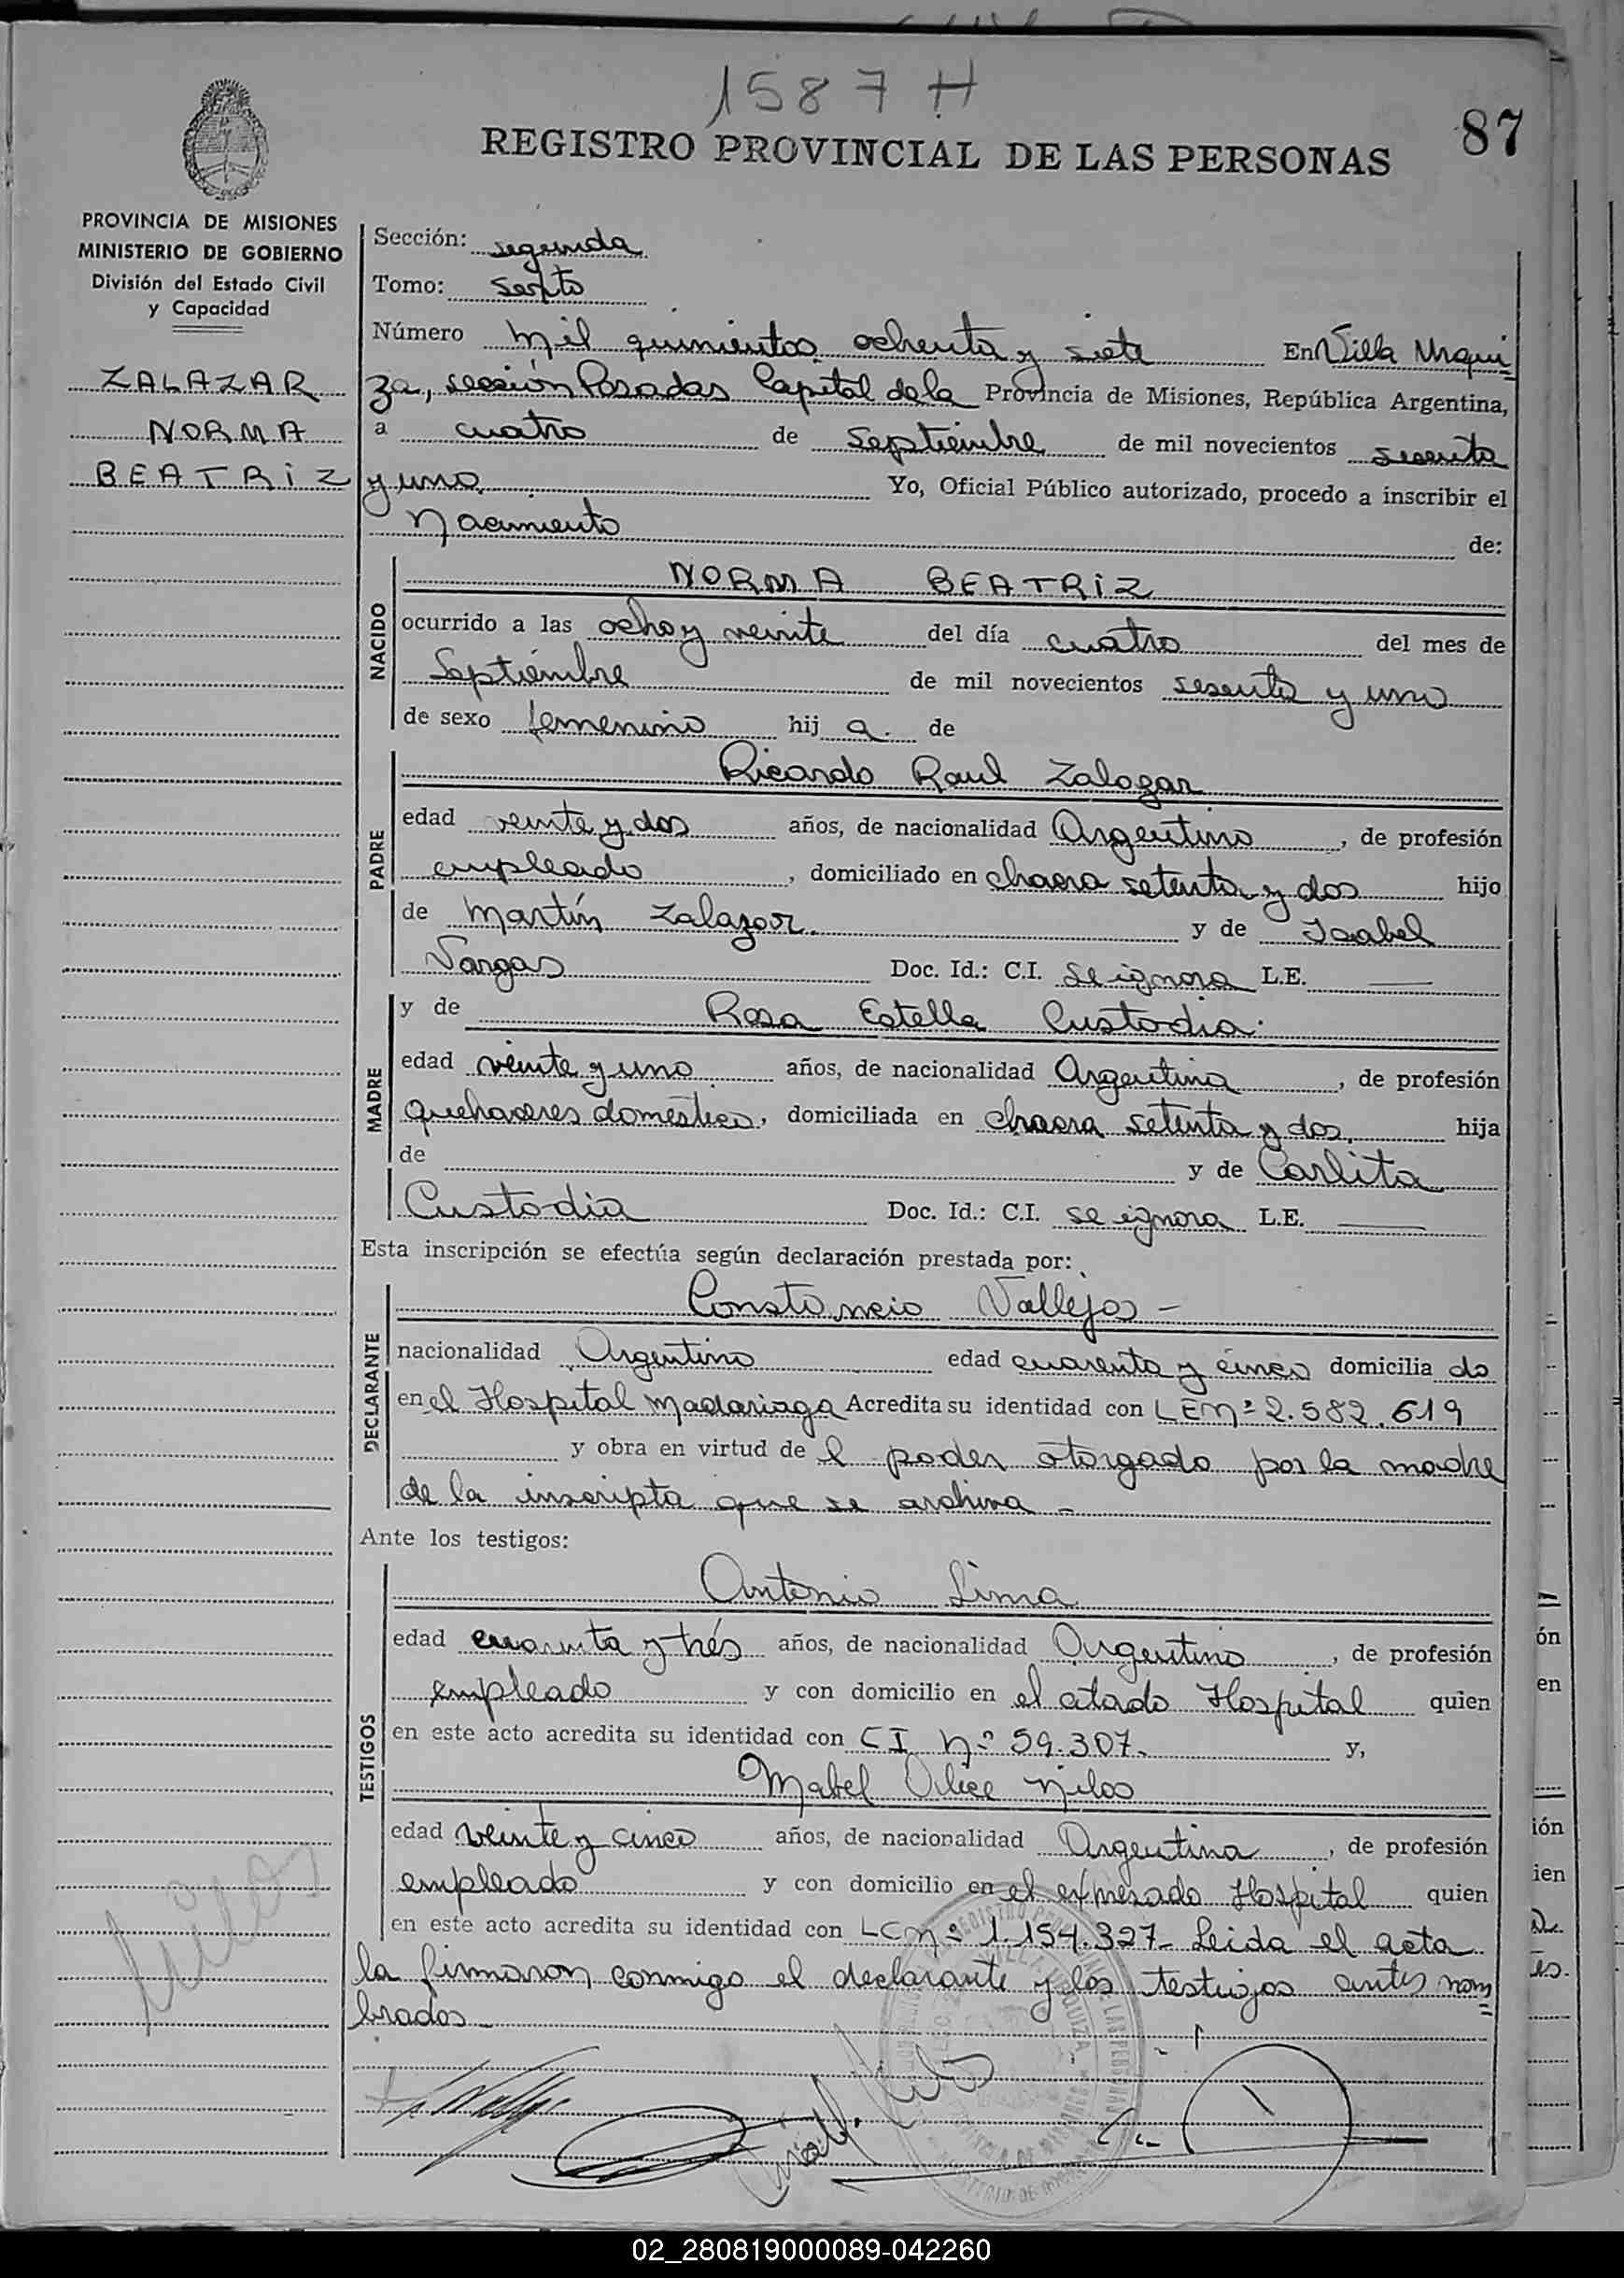 1587 H
87
REGISTRO PROVINCIAL DE LAS PERSONAS
PROVINCIA DE MISIONES
MINISTERIO DE GOBIERNO
División del Estado Civil
y Capacidad
ZALAZAR
NORMA
BEATRIZ
Sección: segunda
Tomo: sexto
Número mil quinientos ochenta y siete En Villa Urqui
za, sección Posadas Capital de la Provincia de Misiones, República Argentina,
a cuatro de Septiembre de mil novecientos sesenta
y uno. Yo, Oficial Público autorizado, procedo a inscribir el
Nacimiento de:
NACIDO
NORMA BEATRIZ
ocurrido a las ocho y veinte del día cuatro del mes de
Septiembre de mil novecientos sesenta y uno
de sexo femenino hij a. de
PADRE
Ricardo Raul Zalazar
edad veinte y dos años, de nacionalidad Argentino, de profesión
empleado, domiciliado en chacra setenta y dos hijo
de Martín Zalazar. y de Isabel
Vargas Doc. Id.: C.I. se ignora L.E. —
MADRE
y de Rosa Estella Custodia.
edad veinte y uno años, de nacionalidad Argentina, de profesión
quehaceres domésticos, domiciliada en chacra setenta y dos. hija
de y de Carlita
Custodia Doc. Id.: C.I. se ignora L.E. —
Esta inscripción se efectúa según declaración prestada por:
DECLARANTE
Constancio Vallejos -
nacionalidad Argentino edad cuarenta y cinco domicilia do
en el Hospital Madariaga Acredita su identidad con LE nº 2.582.619
y obra en virtud de l poder otorgado por la madre
de la inscripta que se archiva -
Ante los testigos:
TESTIGOS
Antonio Lima
edad cuarenta y trés años, de nacionalidad Argentino, de profesión
empleado y con domicilio en el citado Hospital quien
en este acto acredita su identidad con CI nº 59.307. y,
Mabel Alice Milos
edad veinte y cinco años, de nacionalidad Argentina, de profesión
empleado y con domicilio en el expresado Hospital quien
en este acto acredita su identidad con LC nº 1.154.327- Leida el acta
la firmaron conmigo el declarante y los testigos antes nom
brados-
Milos
02_280819000089-042260